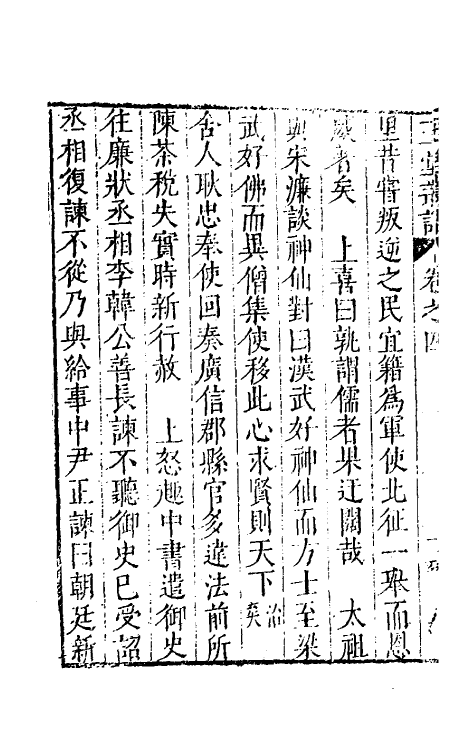 卷之四
里昔嘗叛逆之民宜籍為軍使北征一舉而恩
威著矣　上喜曰孰謂儒者果迂闊哉　太祖
與宋濂談神仙對曰漢武好神仙而方士至梁
武好佛而異僧集使移此心求賢則天下治矣
舍人耿忠奉使回奏廣信郡縣官多違法前所
陳茶稅失實時新行赦　上怒趣中書遣御史
往廉狀丞相李韓公善長諫不聽御史已受詔
丞相復諫不從乃與給事中尹正諫曰朝廷新